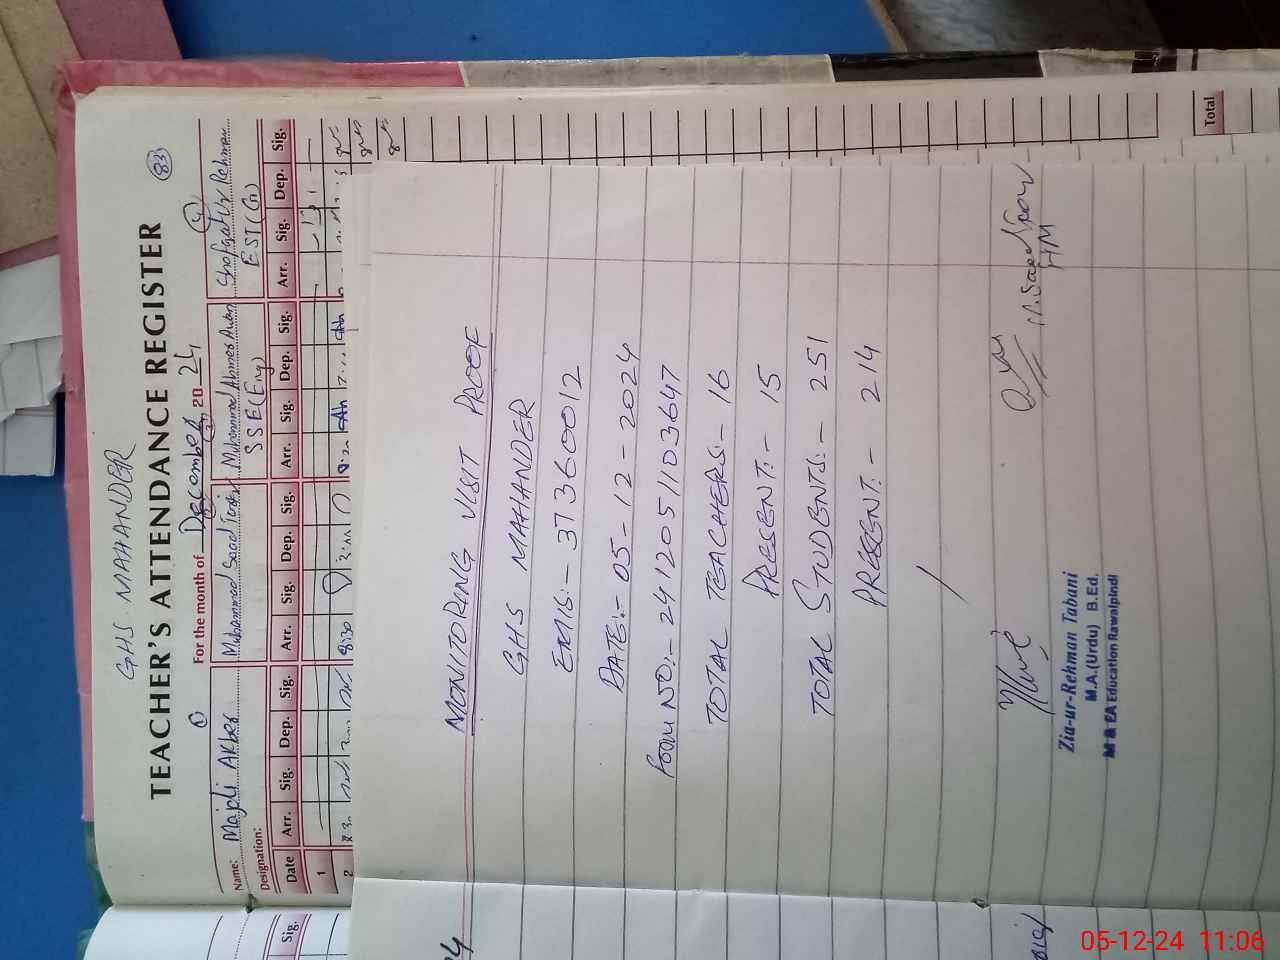 GHS MAHANDER
TEACHER'S ATTENDANCE REGISTER
83
For the month of December 20 24
Name: Majdi Akber Muhammad Saad Muhammad Ahmed Awan Shafqat Ur Rehman
Designation: SSE(Eng) EST(
Date Arr. Sig. Dep. Sig. Arr. Sig. Dep. Sig. Arr. Sig. Dep. Sig. Arr. Sig. Dep. Sig.
1
2 8:30
Total
Sig.
MONITORING VISIT PROOF
GHS MAHANDER
EMIS:- 37360012
DATE:- 05-12-2024
FORM NO:- 2412051103647
TOTAL TEACHERS:- 16
PRESENT:- 15
TOTAL STUDENTS:- 251
PRESENT:- 214
M. Saeed
HM
Zia-ur-Rehman Tabani
M.A.(Urdu) B.Ed.
M & EA Education Rawalpindi
05-12-24 11:06